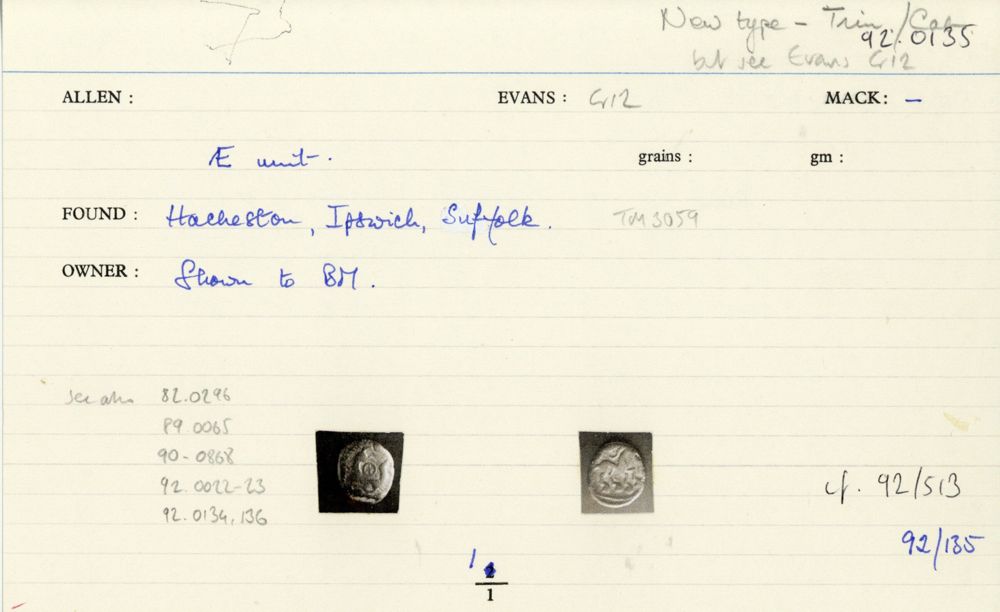 New type - Trin/Cat
92.0135
but see Evans G12
ALLEN :
EVANS : G12
MACK: –
Æ unit.
grains :
gm :
FOUND : Hacheston, Ipswich, Suffolk. TM3059
OWNER : Shown to BM.
see also 82.0296
89.0065
90-0868
92.0022-23
92.0134, 136
cf. 92/513
92/135
1
1